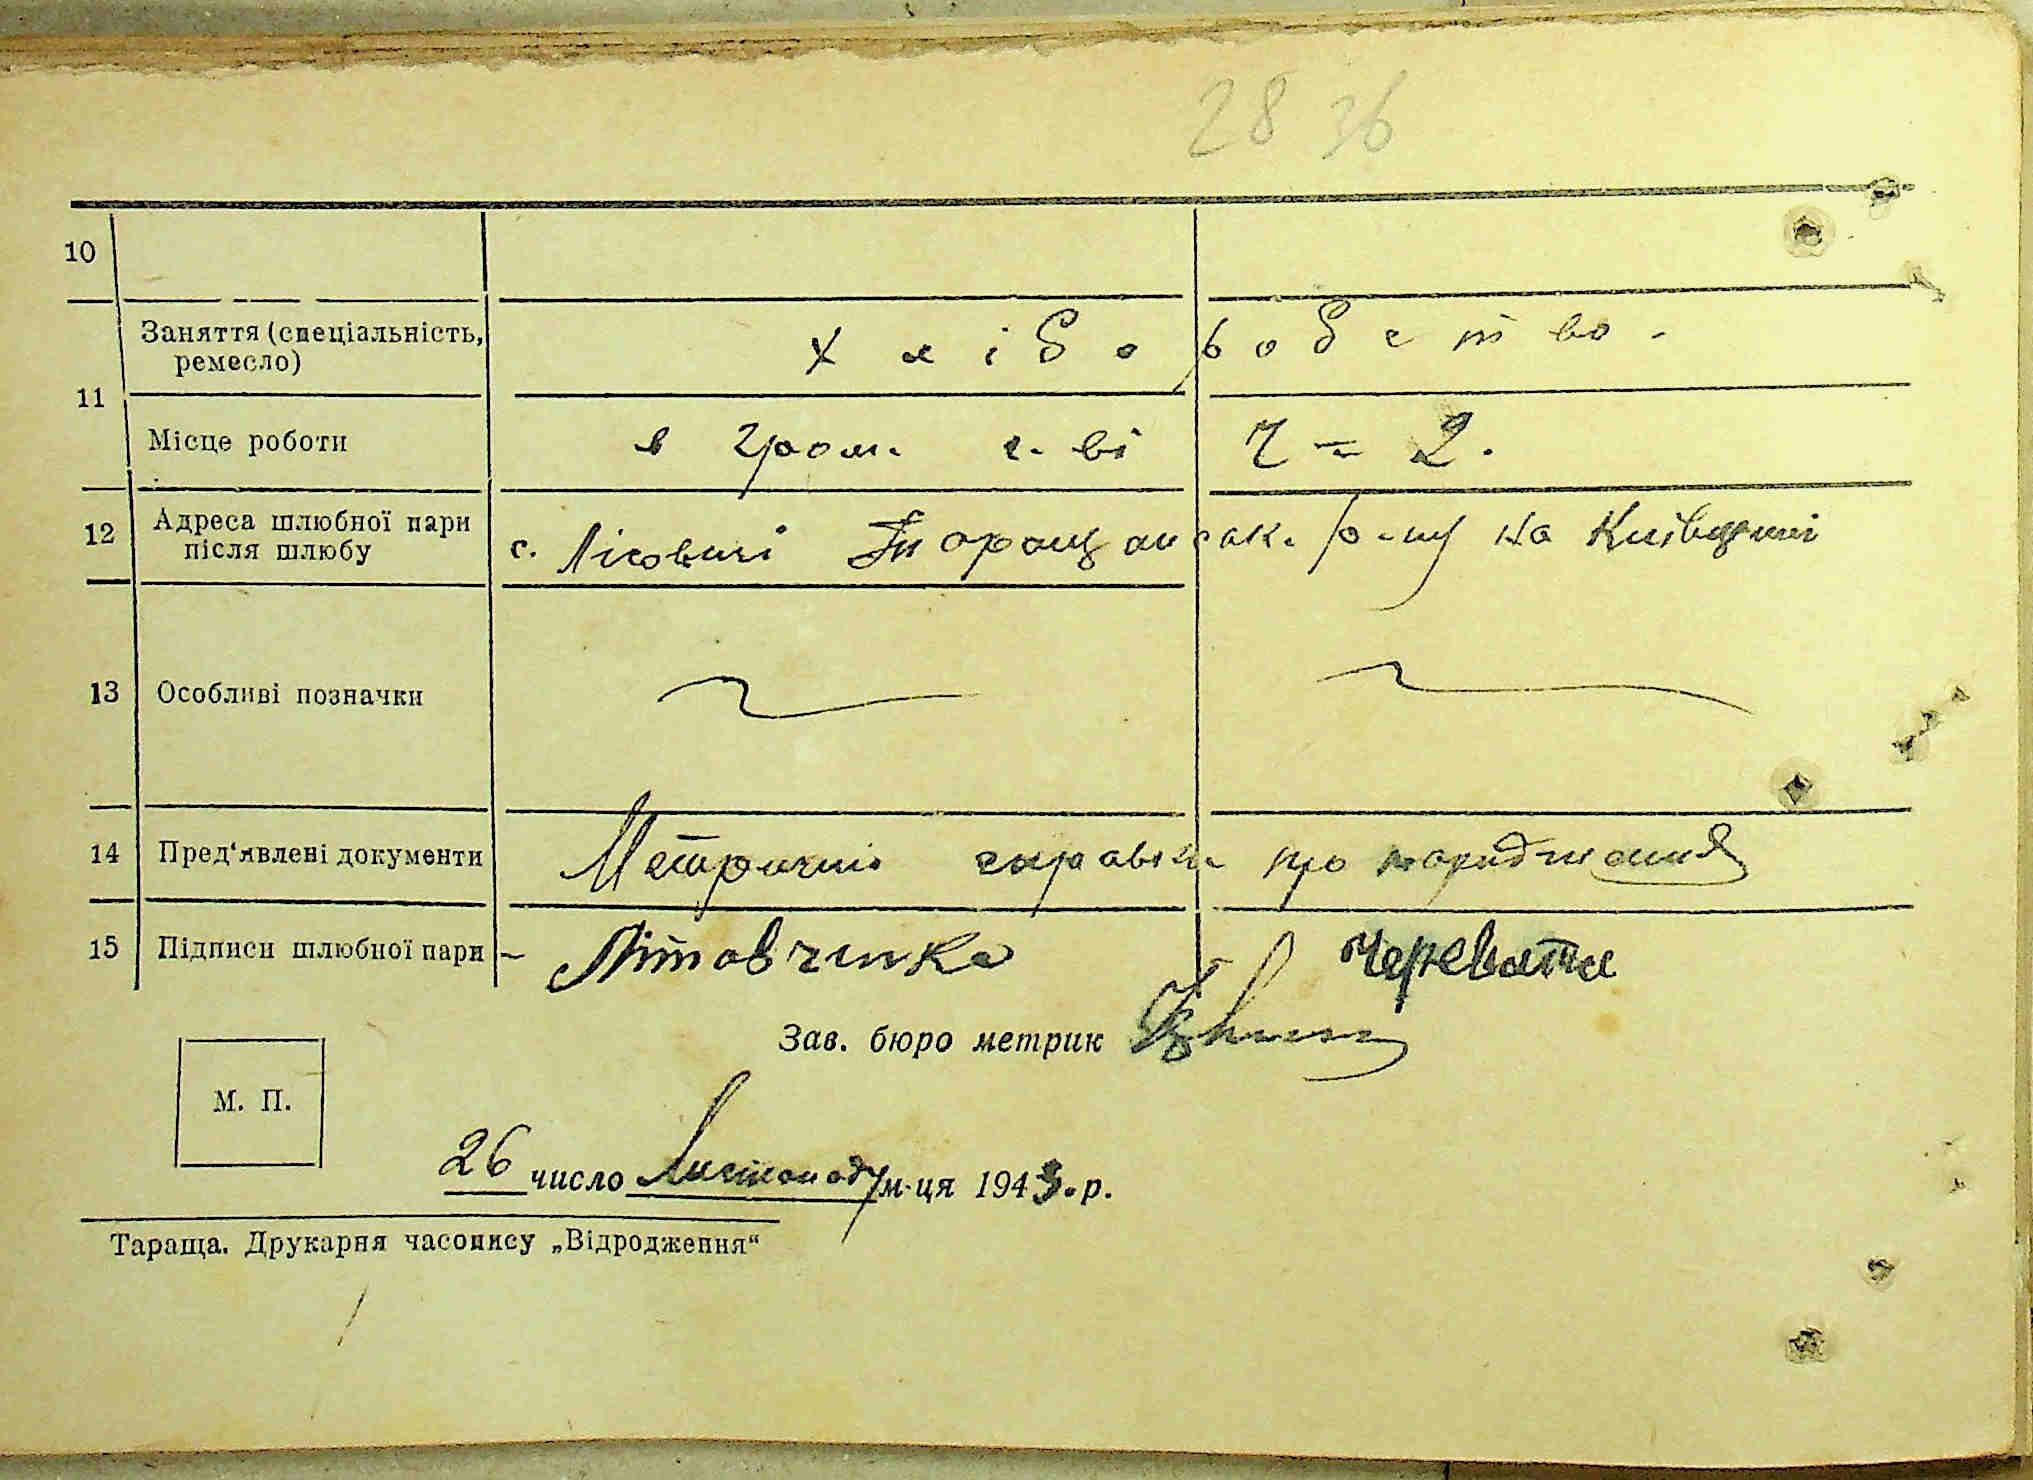 28 36
10
Заняття (спеціальність, ремесло) хліборобство.
11
Місце роботи в гром. г-ві ч = 2.
12 Адреса шлюбної пари після шлюбу с. Лісовичі Таращанськ. р-ну на Київщині
13 Особливі позначки
14 Пред‘явлені документи Метричні справки про народження
15 Підписи шлюбної пари - Літовченко Черевата
Зав. бюро метрик
М. П.
26 число Листопаду м-ця 1943. р.
Тараща. Друкарня часопису „Відродження“